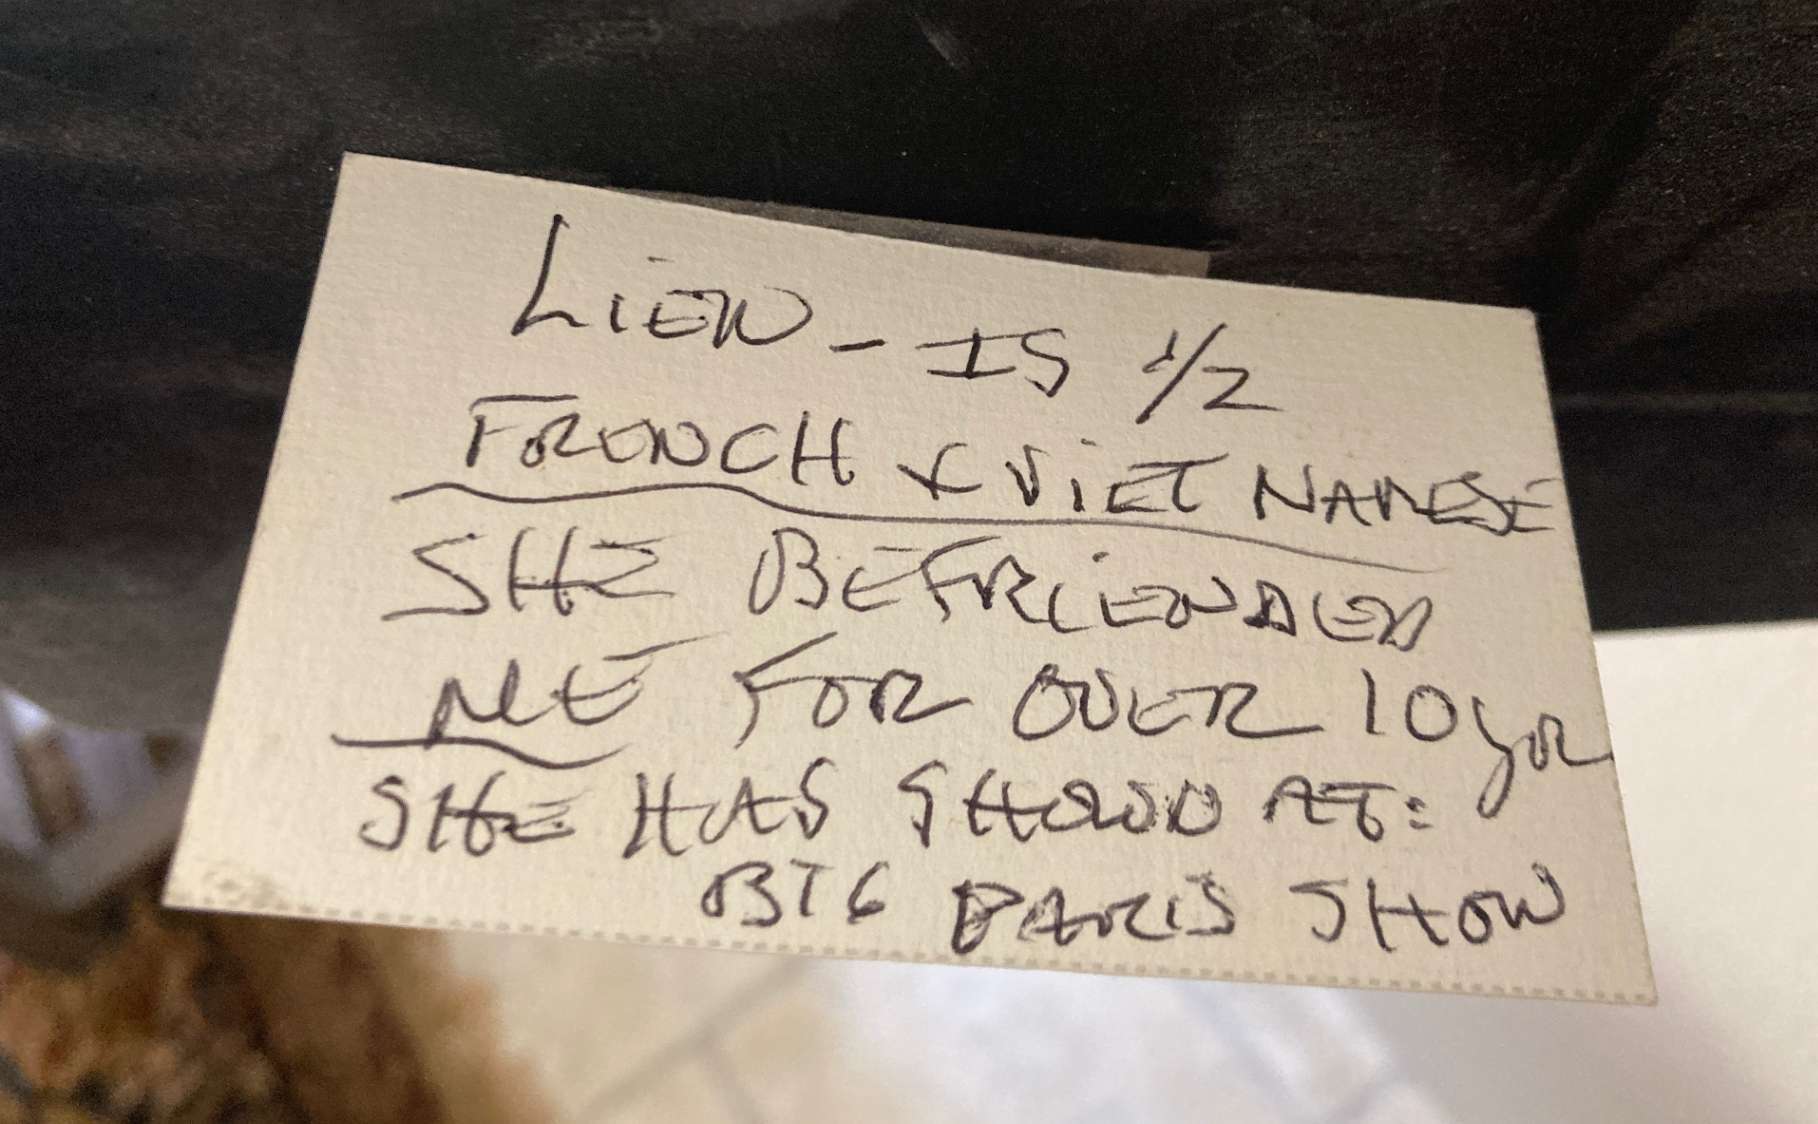 LiEN - IS 1/2
FRENCH & ViET NAMESE
SHE BEFRiENDED
ME FOR OVER 10 yr
SHE HAS SHOWN AT:
BIG PARIS SHOW